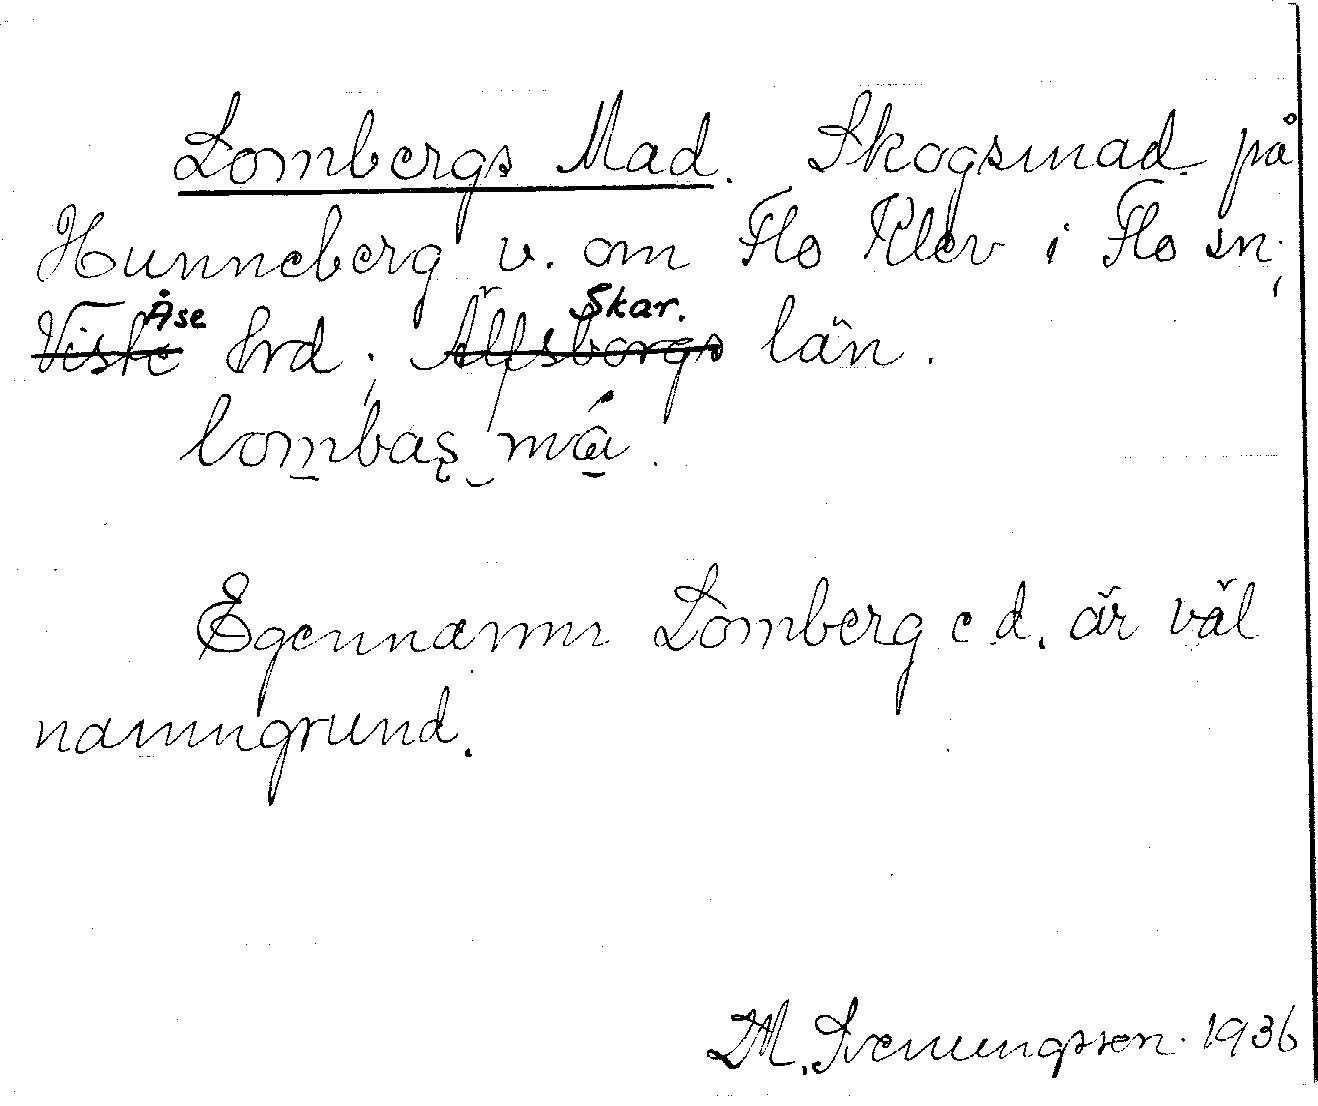 Lombergs Mad. Skogsmad på
Hunneberg v. om Flo Klev i Flo sn,
Viste Åse hrd, Älfsborgs Skar. län.
lombas må.
Egennamn Lomberg e d. är väl
namngrund.
M. Svenungsson. 1936